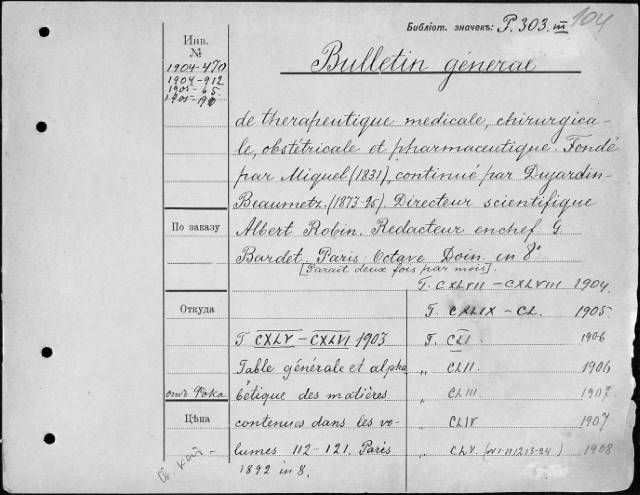 Библіот. значекъ: P. 303. III 104
Инв.
№
1904-470
1904-912
1905-65.
1905-190
Bulletin général
de therapeutique medicale, chirurgica-
le, obstétricale et pharmaceutique. Fondé
par Miquel (1831), continué par Dujardin-
Beaumetz. (1873-95). Directeur scientifique
По заказу
Albert Robin. Redacteur enchef G.
Bardet. Paris. Octave Doin. in 8°
[Parait deux fois par mois].
T. CXLVII - CXLVIII 1904.
Откуда
T. CXLIX - CL. 1905.
T. CXLV - CXLVI 1903
T. CLI 1906
Table générale et alpha
„ CLII. 1906
отъ Фока
bétique des matières
„ CLIII. 1907
Цѣна
contenues dans les vo-
„ CLIV 1907
lumes 112-121. Paris
„ CLV. 1908
1892 in 8.